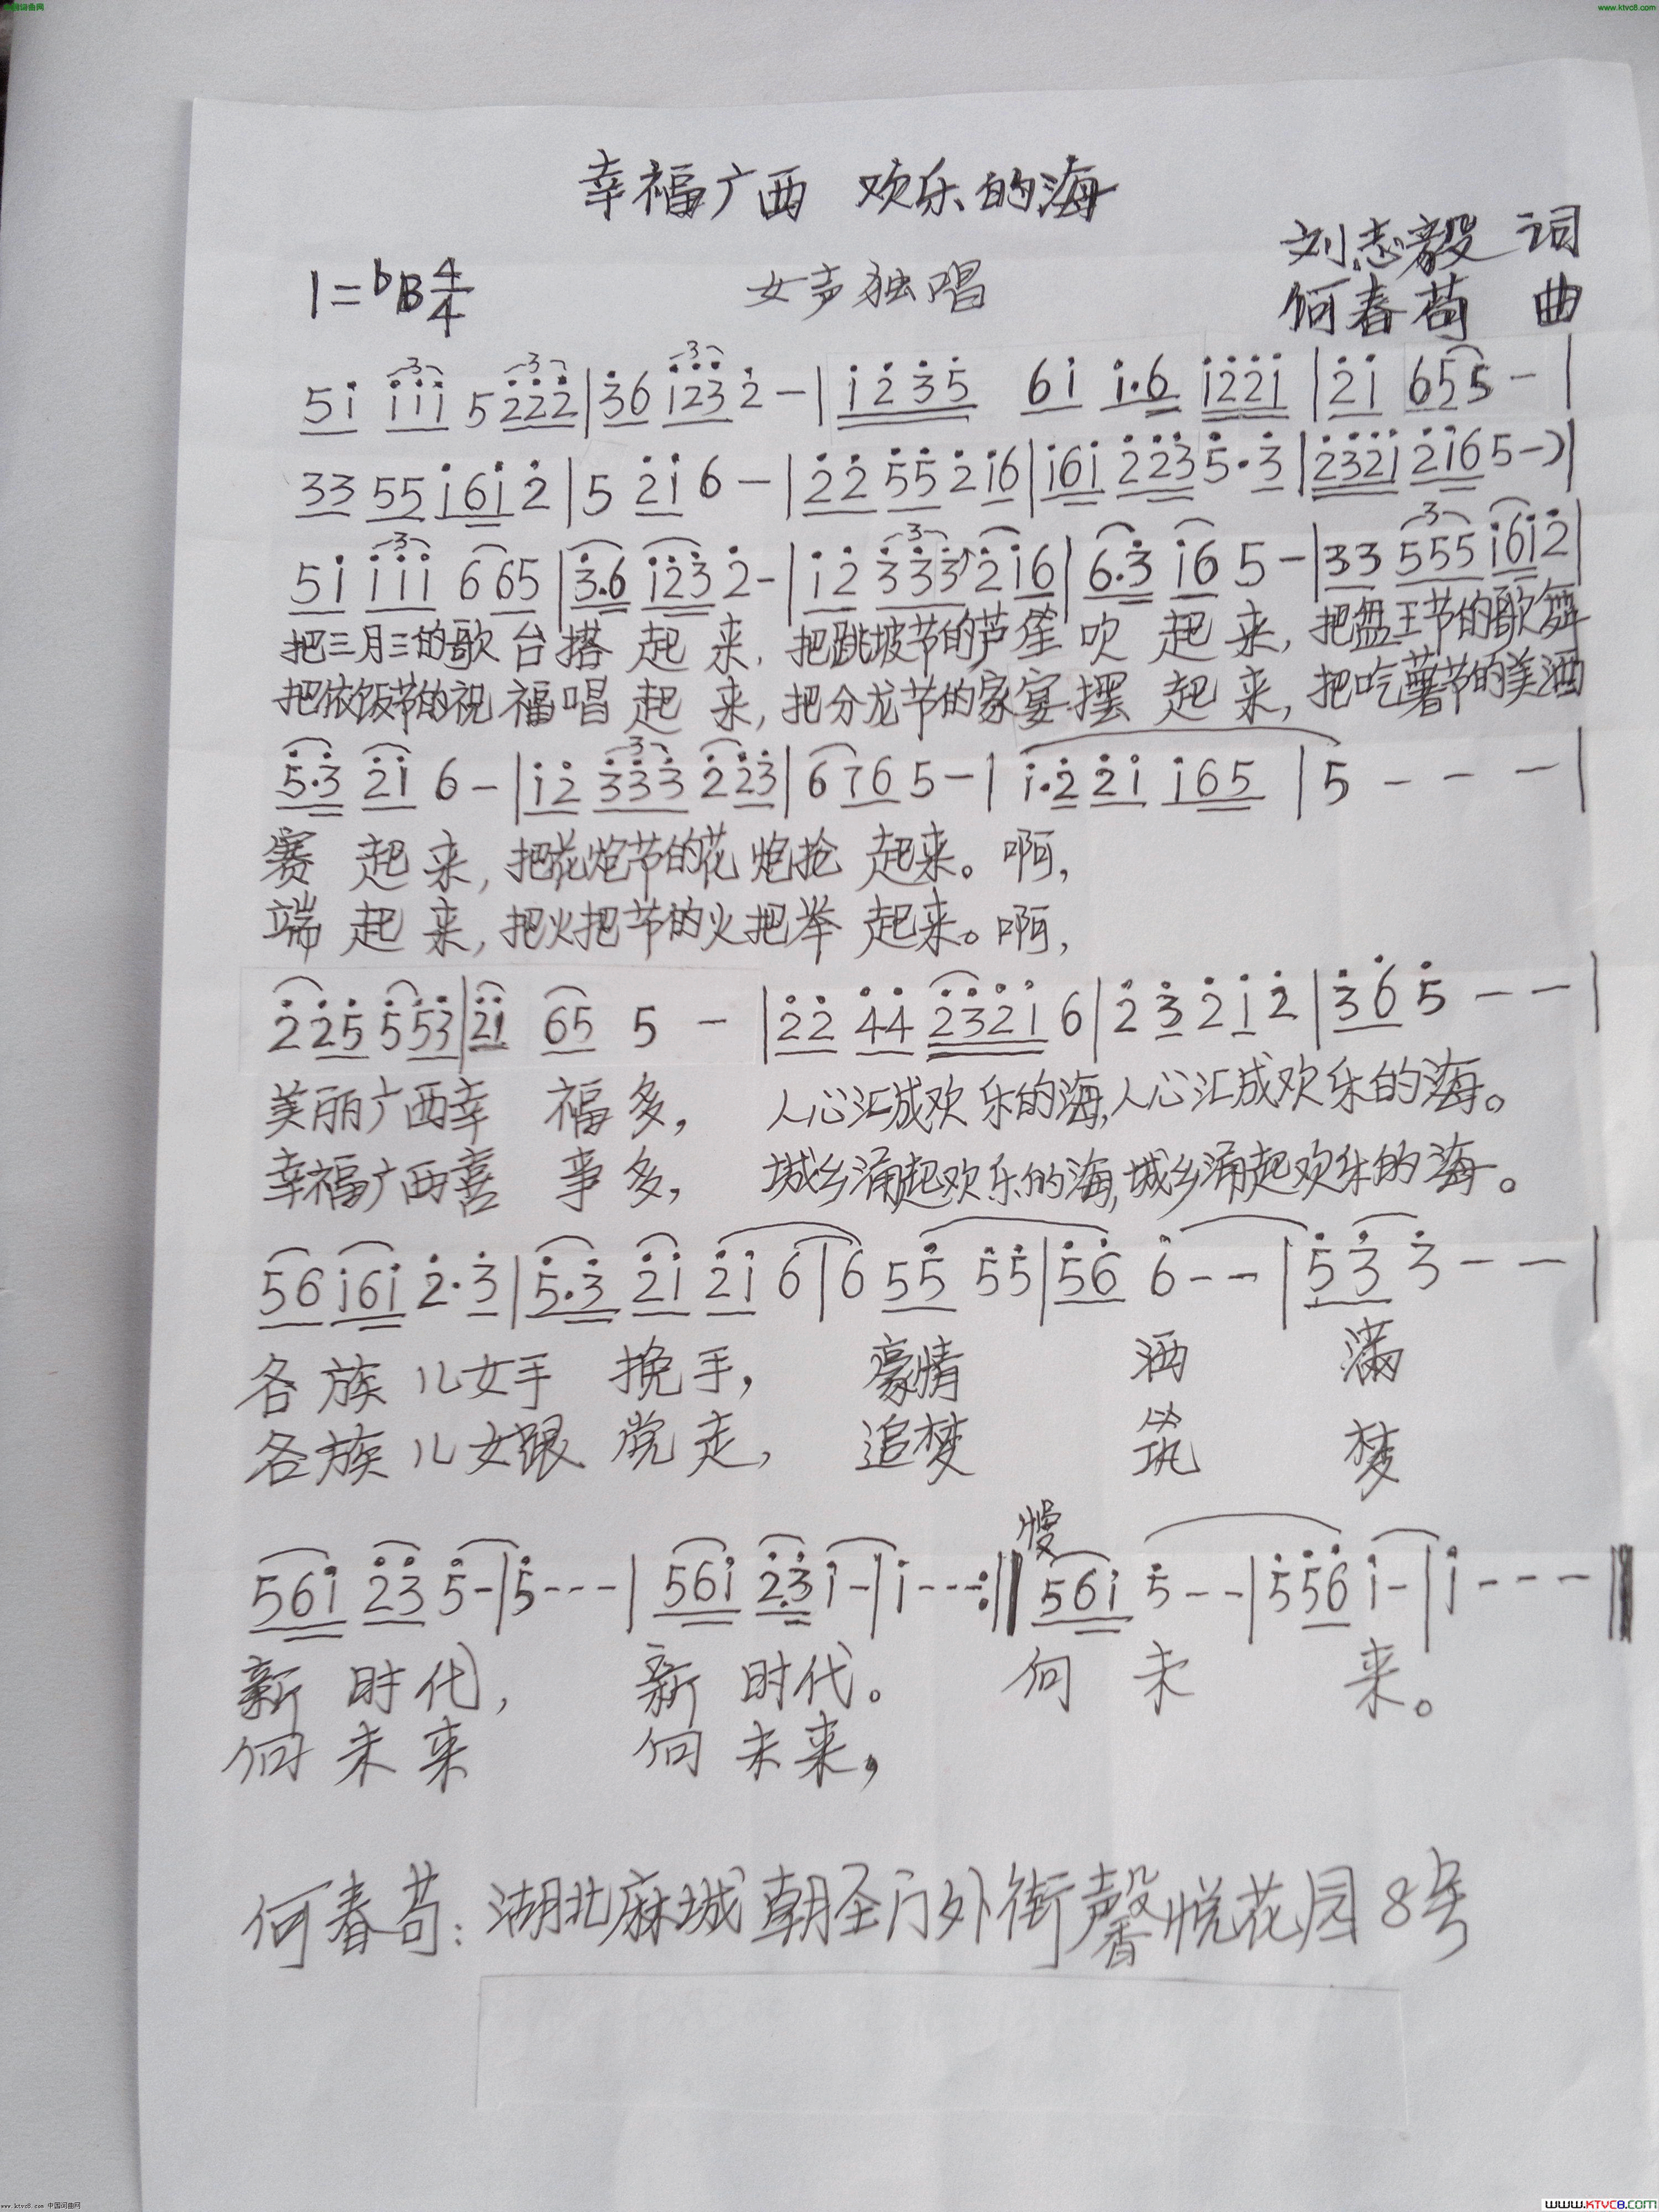 www.ktvc8.com
幸福广西 欢乐的海
刘志毅 词
1=bB4/4
女声独唱
何春苟 曲
5i iii 5222|36 1232-|1235 6i i.6 i22i|2i 655-|
33 55 i6i2|5 2i 6-|22 55 2i6|i6i 2235.3|232i 2i65-)|
5i iii 665|3.6 i232-|i2 3332i6|6.3 i6 5-|33 555i6i2|
把三月三的歌台搭起来,把跳坡节的芦笙吹起来,把盘王节的歌舞
把依饭节的祝福唱起来,把分龙节的家宴摆起来,把吃薯节的美酒
5.3 2i 6-|i2 333 223|6765-|i.22i i65|5---|
赛起来,把花炮节的花炮抢起来。啊,
端起来,把火把节的火把举起来。啊,
225553|2i 65 5-|22 44 232i6|232i2|365--|
美丽广西幸福多,人心汇成欢乐的海,人心汇成欢乐的海。
幸福广西喜事多,城乡涌起欢乐的海,城乡涌起欢乐的海。
56i6i2.3|5.3 2i 2i6|6 55 55|56 6--|533--|
各族儿女手挽手,豪情洒满
各族儿女跟党走,追梦筑梦
慢
56i 23 5-|5---|56i 23i-|i---:||56i 5--|556i-|i---||
新时代,新时代。向未来。
向未来 向未来,
何春苟:湖北麻城朝圣门外街馨悦花园8号
www.ktvc8.com 中国词曲网
WWW.KTVC8.COM